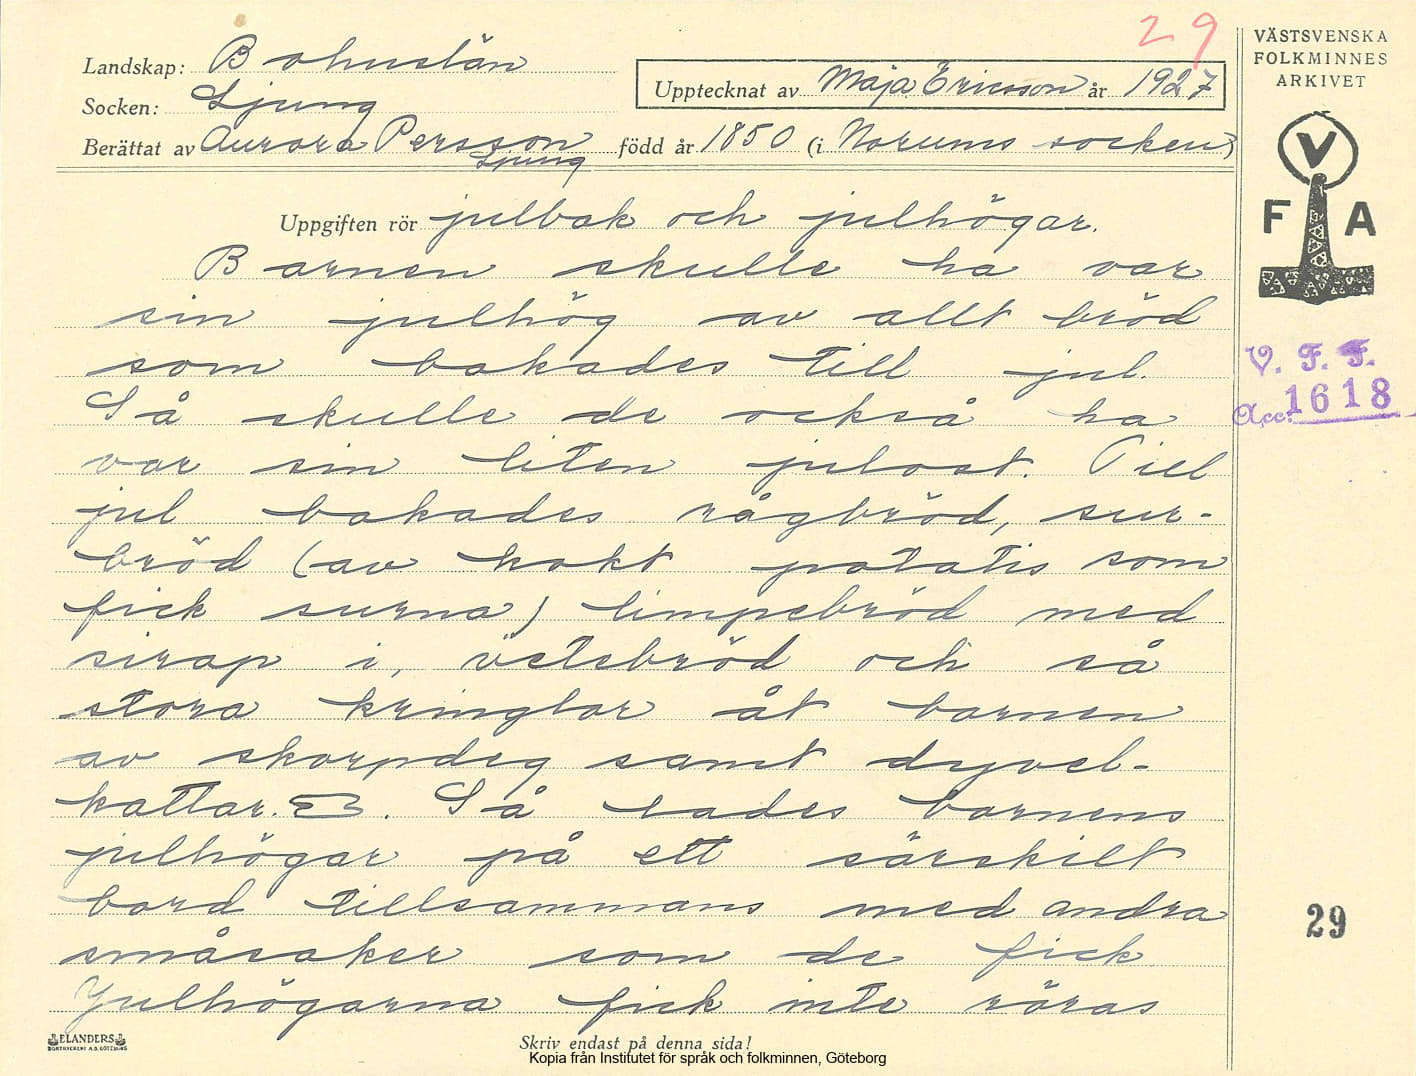 29
Landskap: Bohuslän
Socken: Ljung
Upptecknat av Maja Ericsson år 1927
Berättat av Aurora Persson född år 1850 (i Norums socken)
Ljung
VÄSTSVENSKA
FOLKMINNES
ARKIVET
V
F A
Uppgiften rör julbak och julhögar.
Barnen skulle ha var
sin julhög av allt bröd
som bakades till jul.
Så skulle de också ha
var sin liten julost. Till
jul bakades rågbröd, sur-
bröd (av kokt potatis som
fick surna) limpebröd med
sirap i, vetebröd och så
stora kringlor åt barnen
av skorpdeg samt dyvel-
kattar. Så lades barnens
julhögar på ett särskilt
bord tillsammans med andra
småsaker som de fick
Julhögarna fick inte röras
V. F. F.
Acc. 1618
29
ELANDERS
BOKTRYCKERI A.B. GÖTEBORG
Skriv endast på denna sida!
Kopia från Institutet för språk och folkminnen, Göteborg